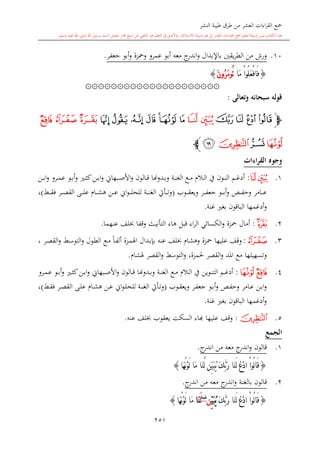 جمع القراءات العشر من طرق طيبة النشر
١٠. ورش من الطريقين بالإبدال واندرج معه أبو عمرو وحمزة وأبو جعفر.
﴿ فَافْعَلُوا مَا تُومَرُونَ ﴾
قوله سبحانه وتعالى :
﴿ قَالُوا ادْعُ لَنَا رَبَّكَ يُبَيِّن لَّنَا مَا لَوْنُهَا قَالَ إِنَّهُ يَقُولُ إِنَّهَا بَقَرَةٌ صَفْرَاءُ فَاقِعٌ
لَّوْنُهَا تَسُرُّ النَّاظِرِينَ ﴾
وجوه القراءات
١. يُبَيِّن لَّنَا : أدغم النون في اللام مع الغنة وبدونها قالون والأصبهاني وابن كثير وأبو عمرو وابن
عامر وحفص وأبو جعفر ويعقوب (وتأتي الغنة للحلواني عن هشام على القصر فقط)،
وأدغمها الباقون بغير غنة.
٢. بَقَرَةٌ : أمال حمزة والكسائي الراء قبل هاء التأنيث وقفا بخلف عنهما.
٣. صَفْرَاءُ : وقف عليها حمزة وهشام بخلف عنه بإبدال الهمزة ألفاً مع الطول والتوسط والقصر ،
وتسهيلها مع المد والقصر لحمزة، والتوسط والقصر لهشام.
٤. فَاقِعٌ لَّوْنُهَا : أدغم التنوين في اللام مع الغنة وبدونها قالون والأصبهاني وابن كثير وأبو عمرو
وابن عامر وحفص وأبو جعفر ويعقوب (وتأتي الغنة للحلواني عن هشام على القصر فقط)،
وأدغمها الباقون بغير غنة.
٥. النَّاظِرِينَ : وقف عليها بهاء السكت يعقوب بخلف عنه.
الجمع
١. قالون واندرج معه من اندرج.
﴿ قَالُوا ادْعُ لَنَا رَبَّكَ يُبَيِّن لَّنَا مَا لَوْنُهَا ﴾
٢. قالون بالغنة واندرج معه من اندرج.
﴿ قَالُوا ادْعُ لَنَا رَبَّكَ يُبَيِّن لَّنَا مَا لَوْنُهَا ﴾
٢٥١